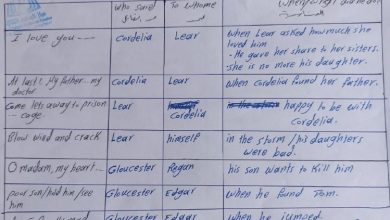 who said To whome When/why
I love you --- Cordelia Lear When Lear asked how much she
loved him
- He gave her share to her sisters.
she is no more his daughter.
At last! My father... my Cordelia Lear When Cordelia found her father.
doctor
Come lets away to prison Lear Cordelia happy to be with
-- cage. Cordelia.
Blow wind and crack Lear himself in the storm / his daughters
were bad.
O madam, my heart... Gloucester Regan his son wants to kill him
poor son/hold him/see Gloucester Edgar When he found Tom.
him
Gloucester Edgar When he jumped